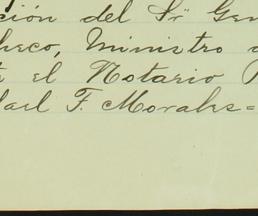 ción del Sr. Gen
checo, Ministro
el Notario
ael F. Morales=